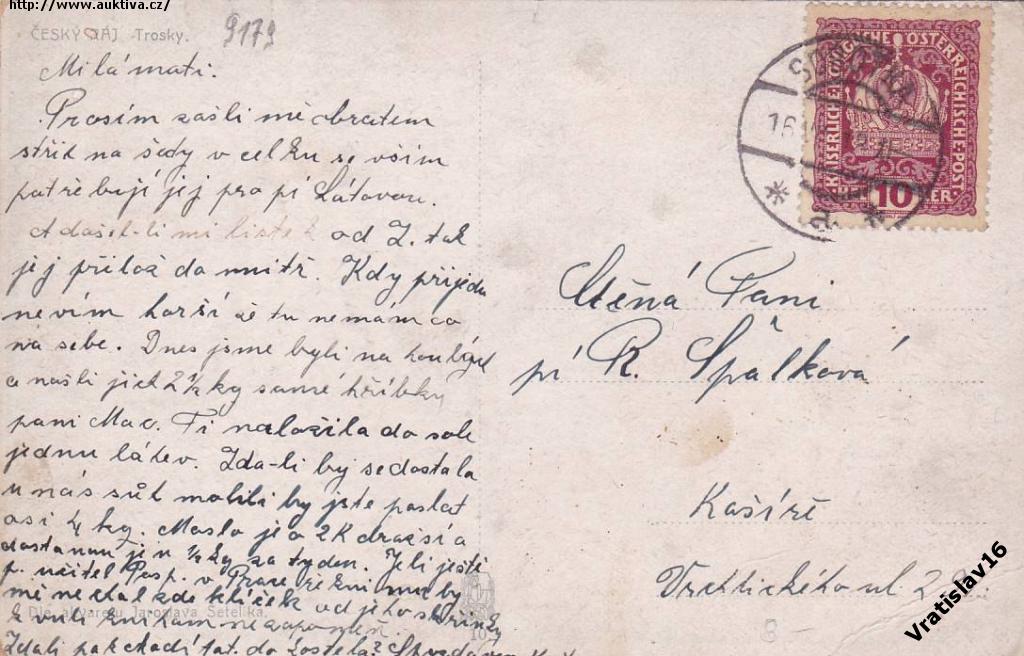 http://www.auktiva.cz/
ČESKÝ RÁJ Trosky.
9179
Milá mati.
Prosím zašli mě obratem
střih na šedy v celku se vším
patřebují jej pro pí Látovou.
A došel-li mi lístek od Z. tak
jej přilož do vnitř. Kdy přijedu
nevím horší že tu nemám co
na sebe. Dnes jsme byli na houbách
a našli jich 2 ½ kg samé hříbky
paní Mac. Ti naložila do sole
jednu láhev. Zda-li by se dostala
u nás sůl mohli by jste poslat
asi 4 kg. Maslo je o 2K dražší a
dostanou jen ½ kg za tyden. Je li ještě
p. učitel Posp. v Praze řekni mu by
mi nechal kde klíček od jeho skřínky
k vůli knihám nezapomeň.
Dle akvarelu Jaroslava Šetelíka.
10
KAISERLICHE KÖNIGLICHE ÖSTERREICHISCHE POST
10
Ctěná Paní
pí R. Špálková
Košíře
Vrchlického ul
8-
Vratislav16